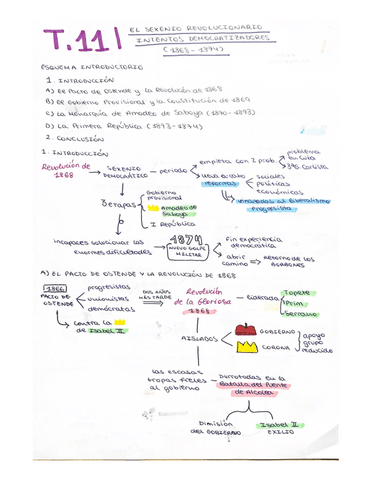 T.11 | EL SEXENIO REVOLUCIONARIO
INTENTOS DEMOCRATIZADORES
(1868-1874)
ESQUEMA INTRODUCTORIO
1. INTRODUCCIÓN
A) El Pacto de Ostende y la Revolución de 1868
B) El Gobierno Provisional y la Constitución de 1869
C) La Monarquía de Amadeo de Saboya (1870-1873)
D) La Primera República (1873-1874)
2. CONCLUSIÓN
1. INTRODUCCIÓN
Revolución de 1868
SEXENIO DEMOCRÁTICO
periodo
empieza con 2 prob.
problema cubita
3ª G. Carlista
lleva a cabo reformas
sociales
políticas
económicas
amoldadas al liberalismo progresista
3 etapas
Gobierno provisional
Amadeo de Saboya
I República
incapaces solucionar las enormes dificultades
1874
NUEVO GOLPE MILITAR
fin experiencia democrática
abrir camino
retorno de los BORBONES
A) EL PACTO DE OSTENDE Y LA REVOLUCIÓN DE 1868
1866
PACTO DE OSTENDE
progresistas
unionistas
demócratas
contra la
de Isabel II
DOS AÑOS MÁS TARDE
Revolución de la Gloriosa
1868
liderada
Topete
Prim
Serrano
AISLADOS
GOBIERNO
CORONA
apoyo grupo reducido
las escasas tropas fieles al gobierno
Derrotadas en la Batalla del Puente de Alcolea
Dimisión del GOBIERNO
Isabel II
EXILIO